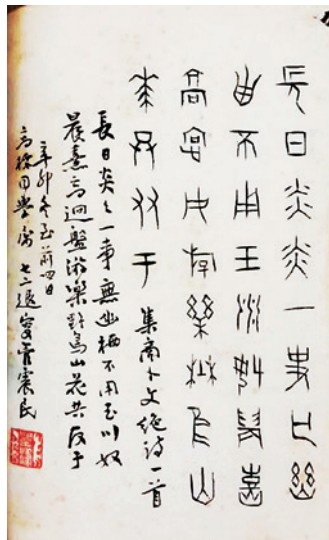 長日炎炎一事亡幽
西不用玉川奴晨喜
高迥盤游樂埜鳥山
華共友于 集商卜文絕詩一首
長日炎々一事無幽栖不用玉川奴
晨熹高迥盤游樂野鳥山花共友于
辛卯冬至前四日
高 同學属 七二退叟 震民